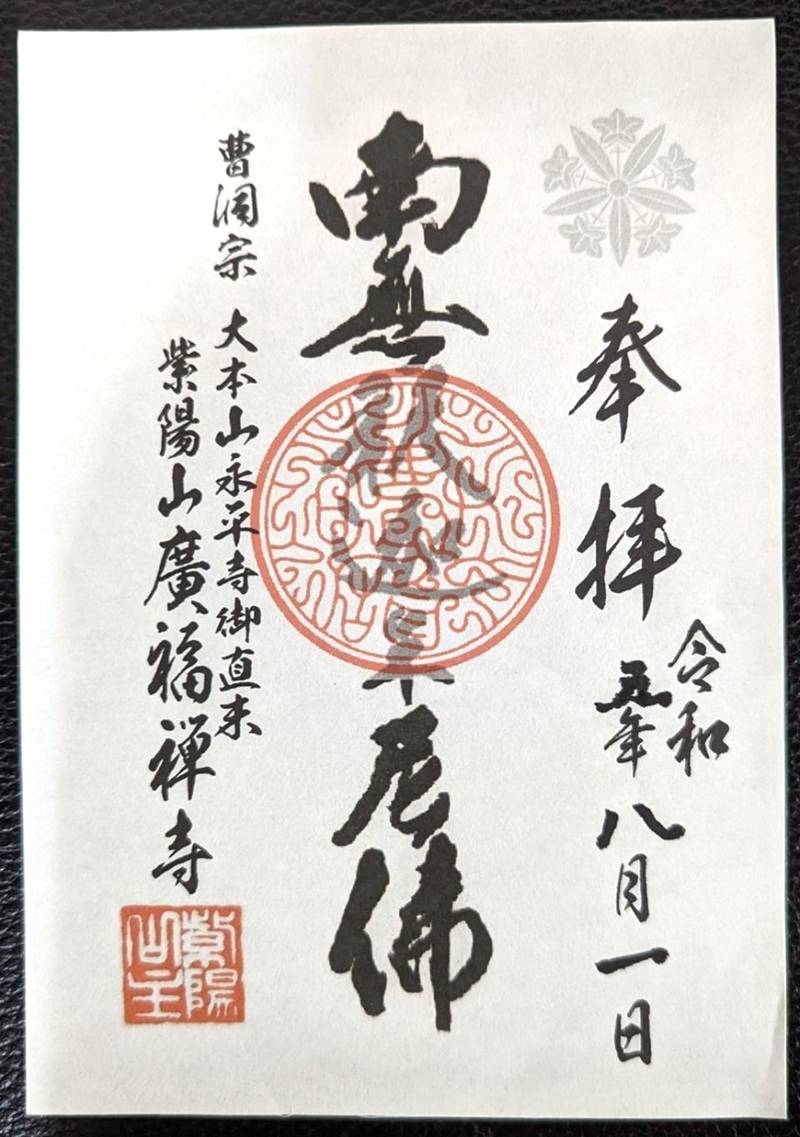 奉拝
令和
五年
八月一日
南無釈迦牟尼佛
曹洞宗 大本山永平寺御直末
紫陽山廣福禅寺
紫陽
山主